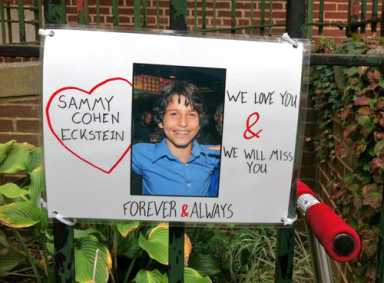 SAMMY
COHEN
ECKSTEIN
WE LOVE YOU
&
WE WILL MISS
YOU
FOREVER & ALWAYS